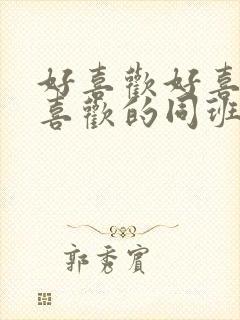 好喜歡好喜
喜歡的同班
郭秀賓